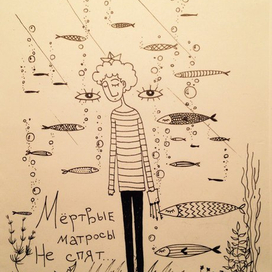 Мёртвые
матросы
Не спят...